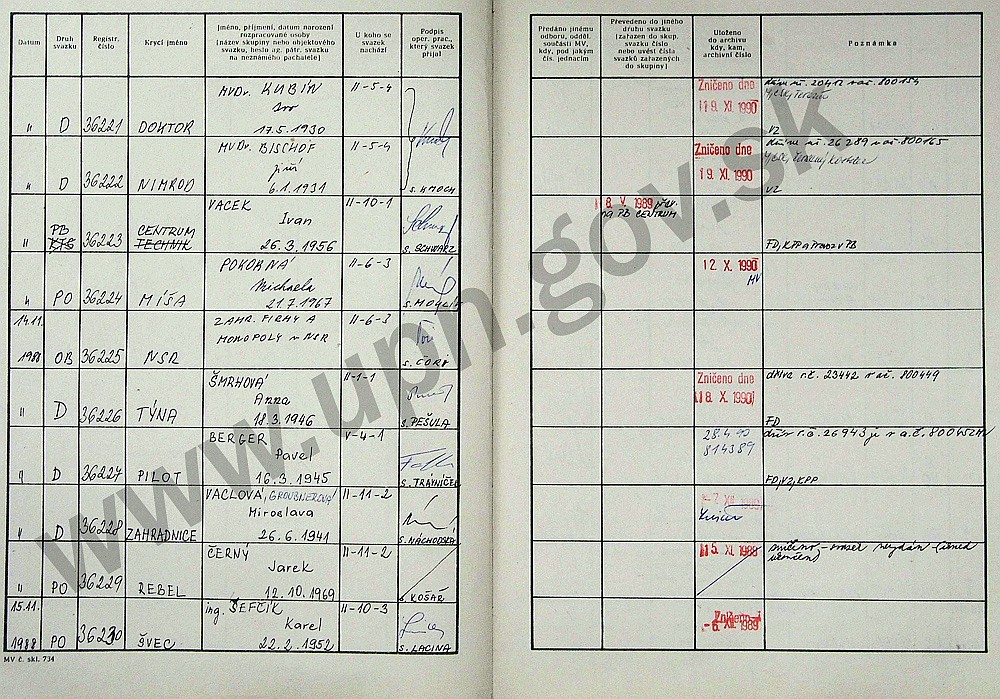 Datum
Druh svazku
Registr. číslo
Krycí jméno
Jméno, příjmení, datum narození
rozpracované osoby
[název skupiny nebo objektového
svazku, heslo ag. pátr. svazku
na neznámého pachatele]
U koho se
svazek
nachází
Podpis
oper. prac.,
který svazek
přijal
Předáno jinému
odboru, odděl.
součásti MV,
kdy, pod jakým
čís. jednacím
Převedeno do jiného
druhu svazku
[zařazen do skup.
svazku číslo
nebo uvést čísla
svazků zařazených
do skupiny]
Uloženo
do archivu
kdy, kam,
archivní číslo
Poznámka
" D 36221 DOKTOR
MVDr. KUBÍN
Ivo
17.5.1930
II-5-4
Zničeno dne
19. XI. 1990
dříve r.č. 20412 r. ač. 800154
VZ
" D 36222 NIMROD
MVDr. BISCHOF
Jiří
6.1.1931
II-5-4
s. KMOCH
Zničeno dne
19. XI. 1990
dříve r.č. 26289 r. ač. 800165
VZ
" PB KTS 36223 CENTRUM TECHNIK
VACEK
Ivan
26.3.1956
II-10-1
s. SCHWARZ
8. V. 1989 přev.
na PB CENTRUM
" PO 36224 MÍŠA
POKORNÁ
Michaela
21.7.1967
II-6-3
12 X. 1990
MV
14.11.
1988 OB 36225 NSR
ZAHR. FIRMY A
MONOPOLY v NSR
II-6-3
Zničeno dne
18. X. 1990
" D 36226 TÝNA
ŠMRHOVÁ
Anna
18.3.1946
II-1-1
s. PEŠULA
dříve r.č. 23442 r. ač. 800449
FD
" D 36227 PILOT
BERGER
Pavel
16.3.1945
V-4-1
s. TRÁVNÍČEK
28.4.90
814389
FD, VZ, KPP
" D 36228 ZAHRADNICE
VACLOVÁ, GROUBNEROVÁ
Miroslava
26.6.1941
II-11-2
s. NÁCHODSKÝ
" PO 36229 REBEL
ČERNÝ
Jarek
12.10.1969
II-11-2
s. KOŠAŘ
15. XI. 1988
15.11.
1988 PO 36230 ŠVEC
ing. ŠEFČÍK
Karel
22.2.1952
II-10-3
s. LACINA
Zničeno
-6. XII. 1989
MV č. skl. 734
www.upn.gov.sk